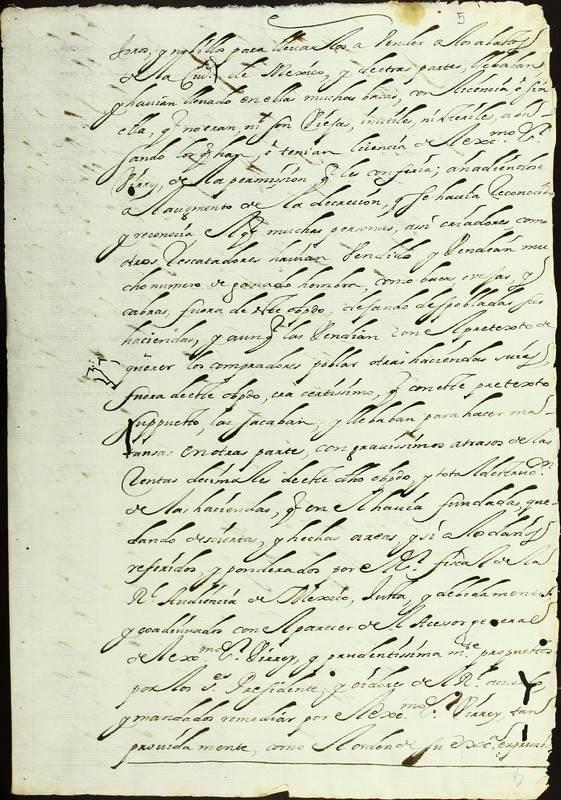 5
toros, y novillos para llevarlos a vender a los abastos
de la Ciu.d de Mexico, y de otras partes, llebaban
y havian llevado en ella muchas bacas, con licencia ô sin
ella, q̃ no eran, ni son viejas, inutiles, ni esteriles, abu-
sando los q̃ han, ô tenian licencia de el ex.mo S.r
Virrey, de la permission q̃ les conferia; añadiendose
a el augmento de la decrecion, q̃ se havia reconocido
y reconocia el q̃ muchas personas, asi criadores como
otros rescatadores havian vendido y vendian mu
cho numero de ganado hembra, como bacas, ovejas, y
cabras, fuera de este obpdo, dejando despobladas sus
haciendas, y aunq̃ las vendian con el pretexto de
querer los compradores poblar otras haciendas suyas,
fuera de este obpdo, era certissimo, q̃ con este pretexto
suppuesto, las sacaban, y llebaban para hacer ma-
tansas en otras parte, con gravissimos atrasos de las
rentas decimales de este dho obpdo, y total destruic.n
de las haciendas, q̃ en el havia fundadas, que-
dando desiertas, y hechas eriasas, y si a los daños
referidos, y ponderados por el S.r fiscal de la
R.l Audiencia de Mexico, justa, y debidamente
y coadiuvado con el parecer de el Asesor general
de el ex.mo S.r Virrey, y prudentissima m.te propuestos
por los S.es Presidente, y oidores de el R.l acuerdo
y mandados remediar por el ex.mo S.r Virrey, tan
provida mente, como el orden de su ex.a expresaba